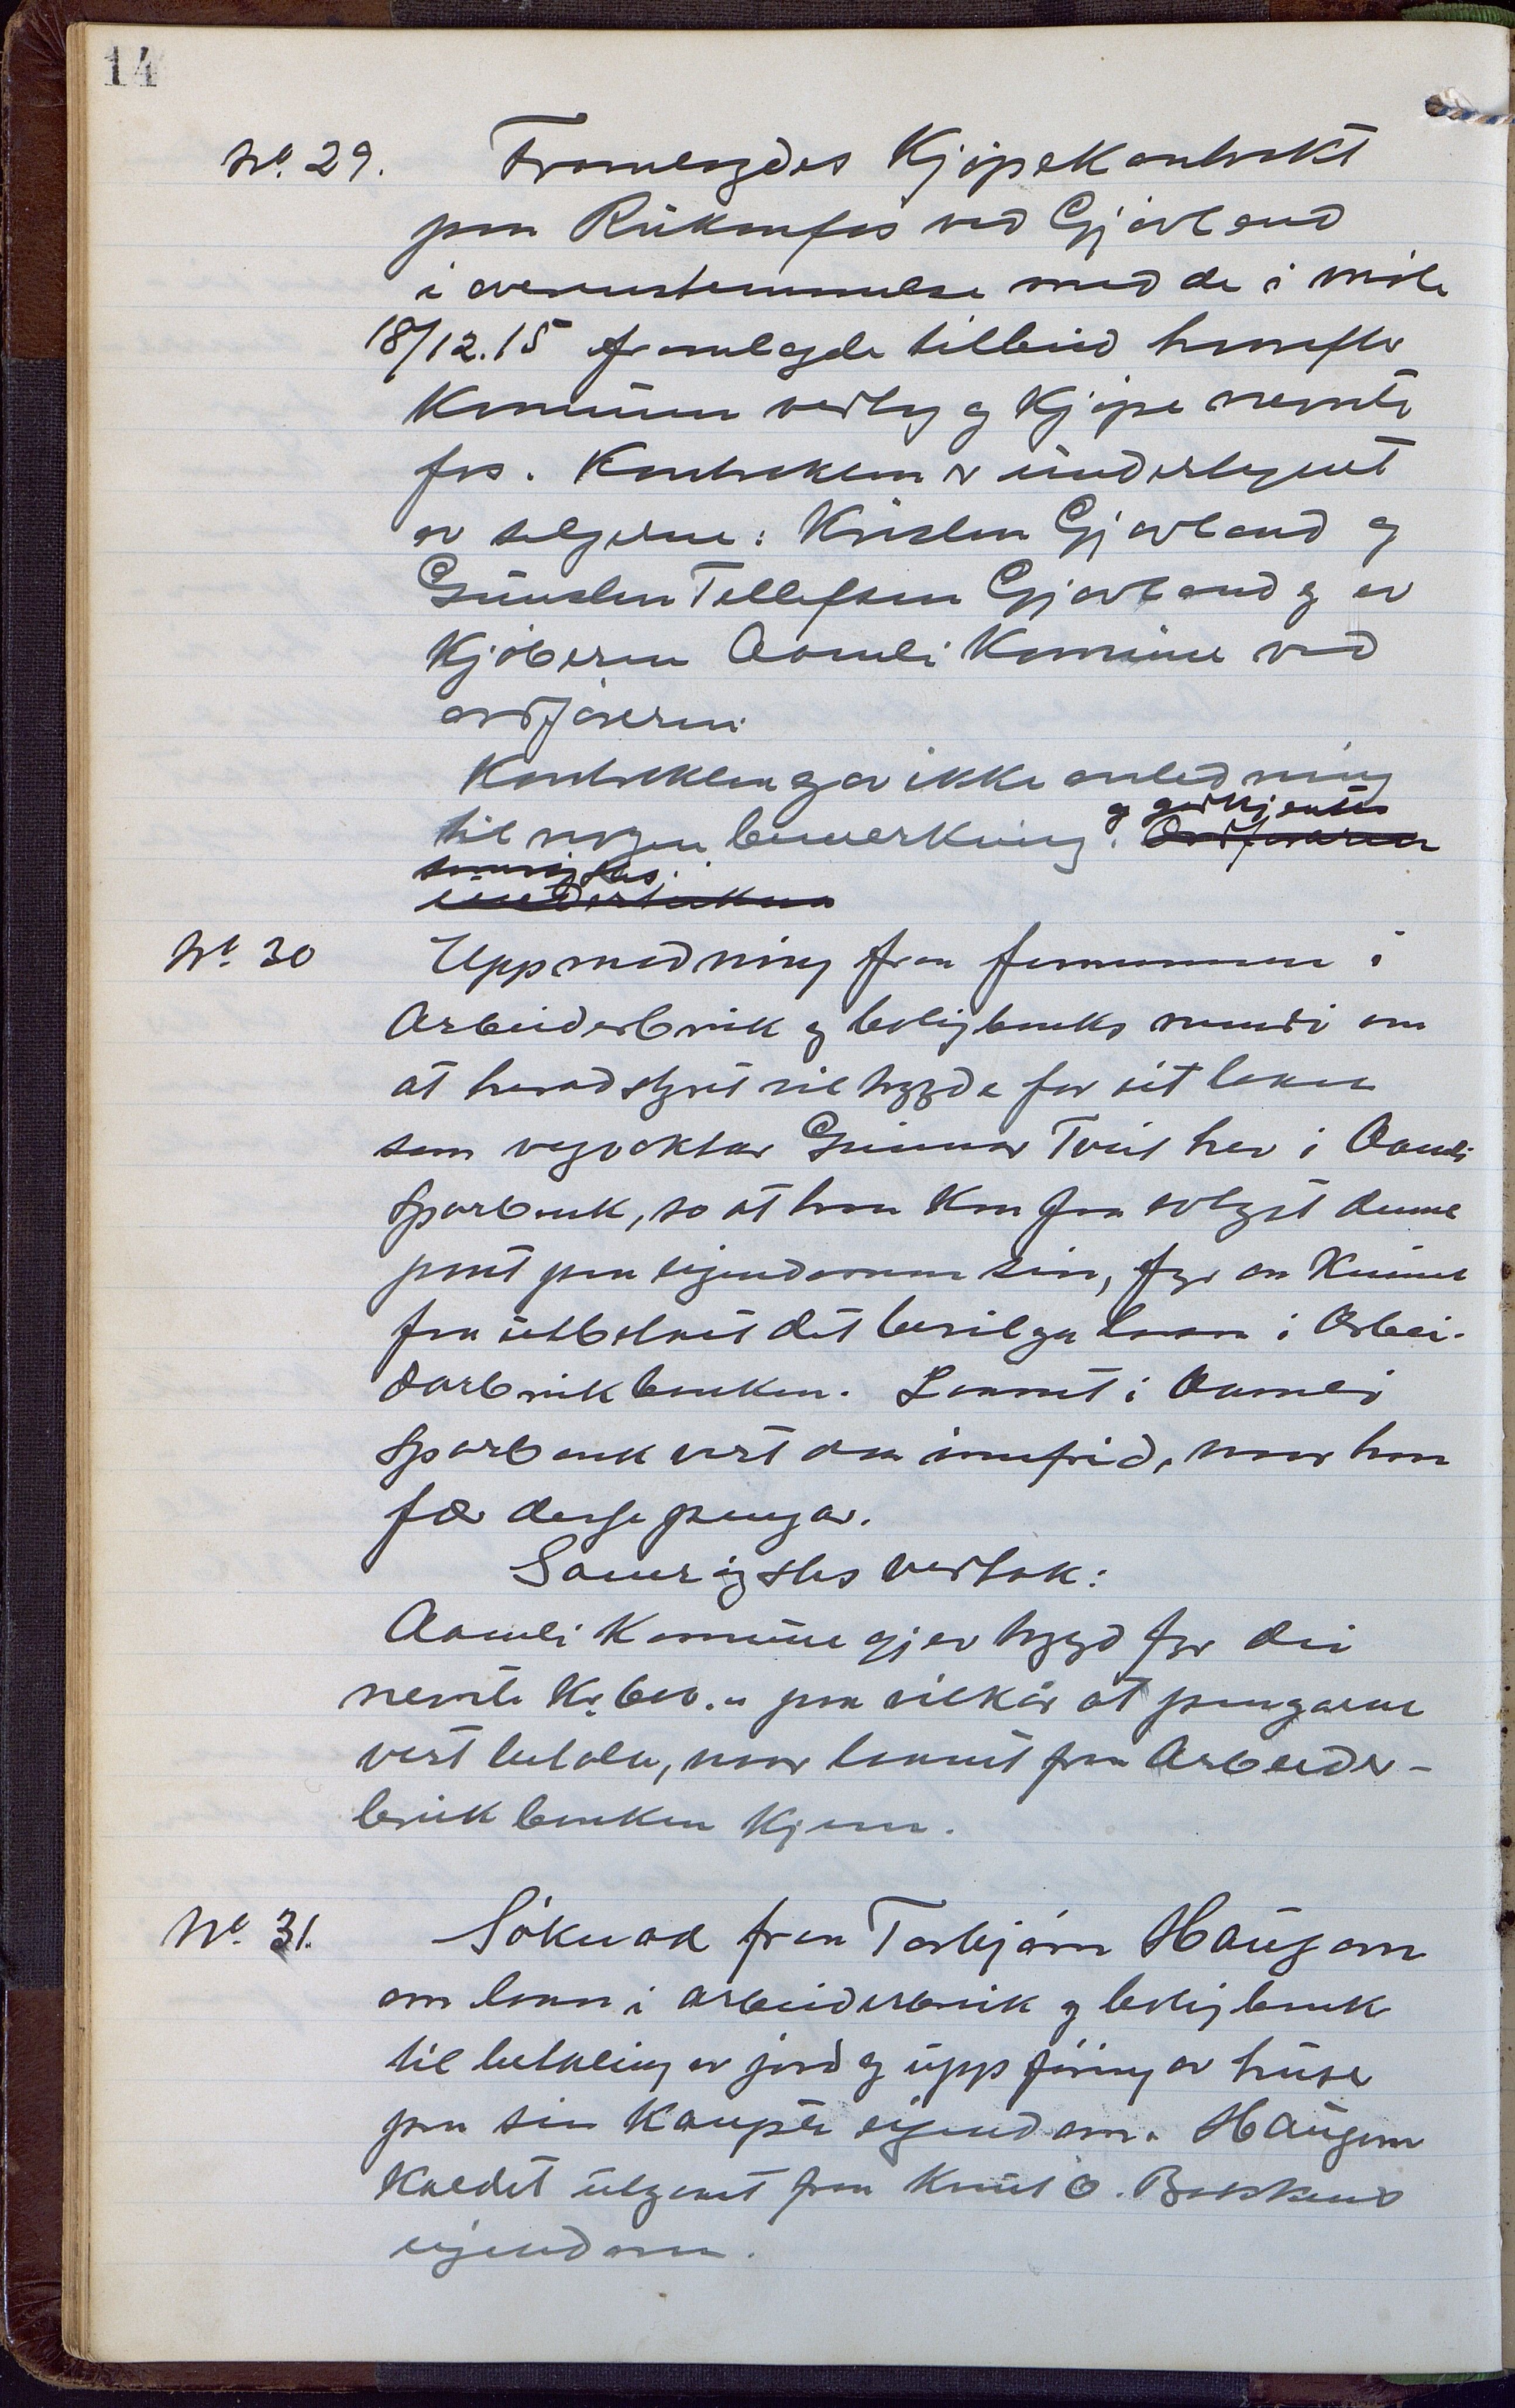 14
No. 29. Framlegdes Kjöpekontrakt
paa Rukanfos ved Gjövland
i overenstemmelse med de i möte
18/12.15 framlagde tilbud hvorefter
Komunen vedtog og kjöpe nemnte
fos. Kontrakten er undertegnet
av selgerne: Kristen Gjövland og
Gunsten Tellefsen Gjövland og av
Kjöberen Aamli Komune ved
ordföreren.
Kontrakten gav ikke anledning
til nogen bemerkning. Ordföreren
og godkjentes
samrøystes.
undertukna
No. 30 Uppmodning fraa formannen i
Arbeiderbruk og boligbanks nemdi om
at heradstyret vil trygde for eit laan
som vegvaktar Gunnar Tveit hev i Aamli
Sparbank, so at han kan faa avlyst denne
pant paa eigendomen sin, fyr en kunne
faa utbetalt det bevilga laan i Arbei-
darbrukbanken. Laanet i Aamli
Sparbank vert daa innfrid, naar han
fær desse pengar.
Samrøystes vedtak:
Aamli Komune gjev trygd fyr dei
nemnte Kr. 600.- paa vilkår at pengarne
vert betalte, naar laanet fraa Arbeider-
brukbanken kjem.
No. 31. Söknad fraa Torbjörn Haugom
om laan i arbeiderbruk og boligbank
til betaling av jord og uppföring av huser
paa sin kaupte eigendom. Haugom
kaldet utgaat fraa Knut O. Bakkens
eigendom.